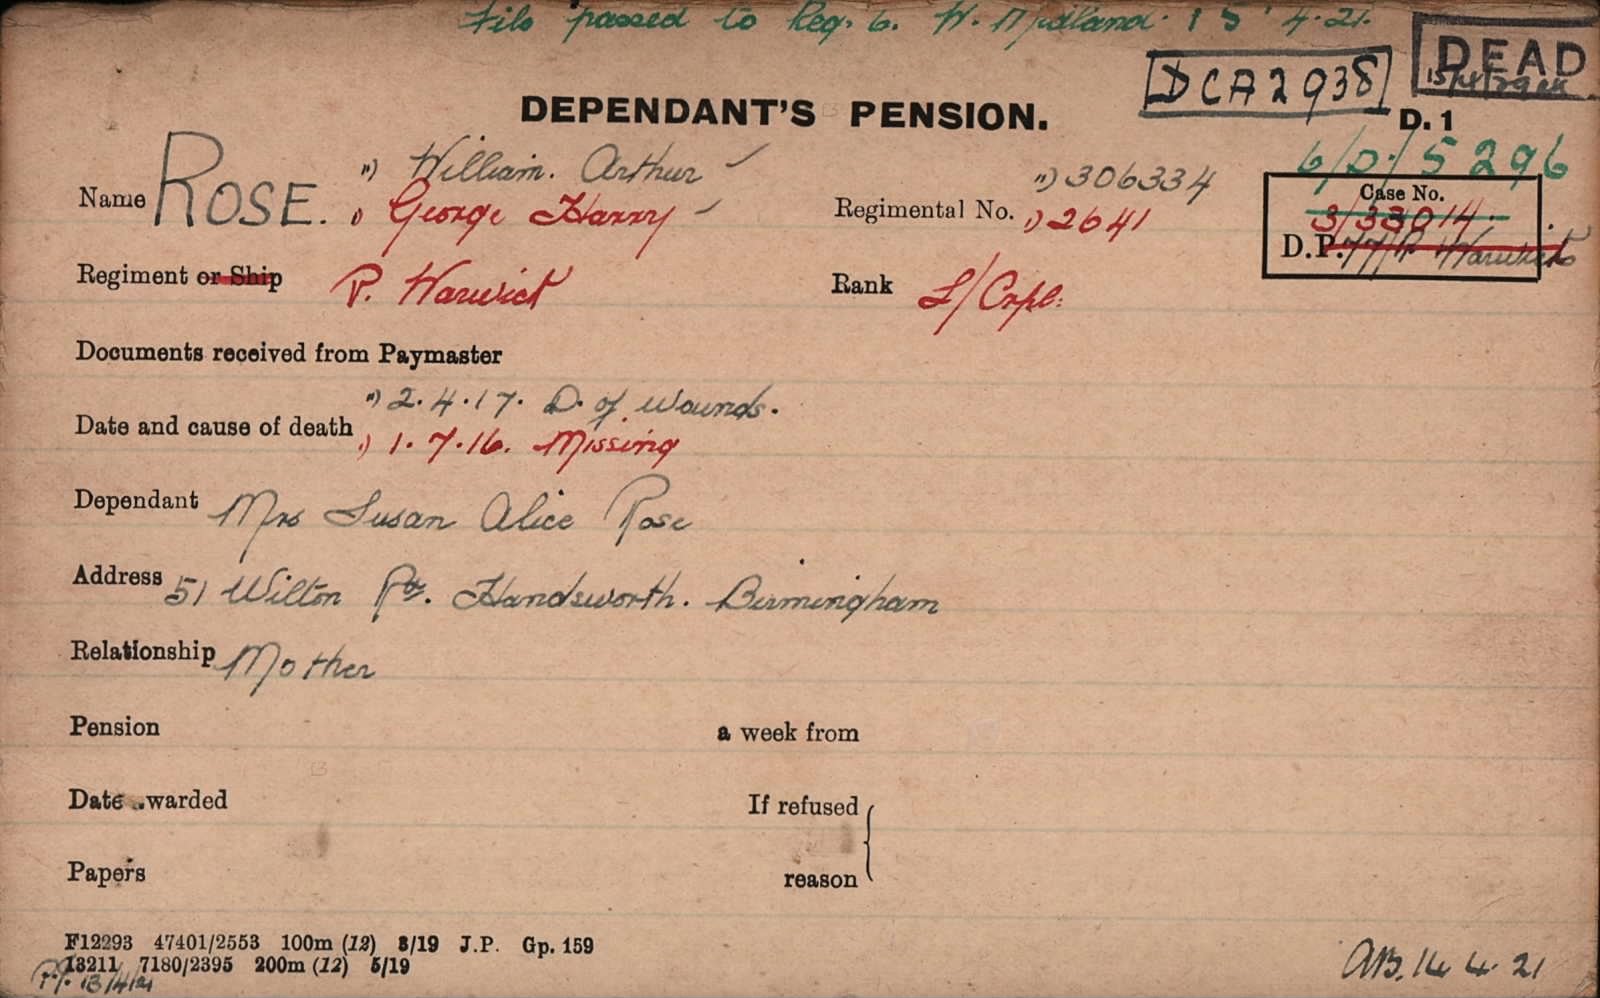 File passed to Reg. 6. W. Midland. 15 4.21.
DCA2938
DEAD
DEPENDANT'S PENSION.
D. 1
6/D/5296
Name ROSE. ") William. Arthur
') George Harry
Regimental No. ") 306334
') 2641
Case No.
3/33014.
D.P. Warwick
Regiment or Ship R. Warwick
Rank L/Crpl:
Documents received from Paymaster
Date and cause of death ") 2.4.17. D. of Wounds.
') 1.7.16. Missing
Dependant Mrs Susan Alice Rose
Address 51 Wilton Rd. Handsworth. Birmingham
Relationship Mother
Pension a week from
Date awarded If refused
Papers reason
F12293 47401/2553 100m (12) 3/19 J.P. Gp. 159
13211 7180/2395 200m (12) 5/19
13/4/21
AB. 14 4.21